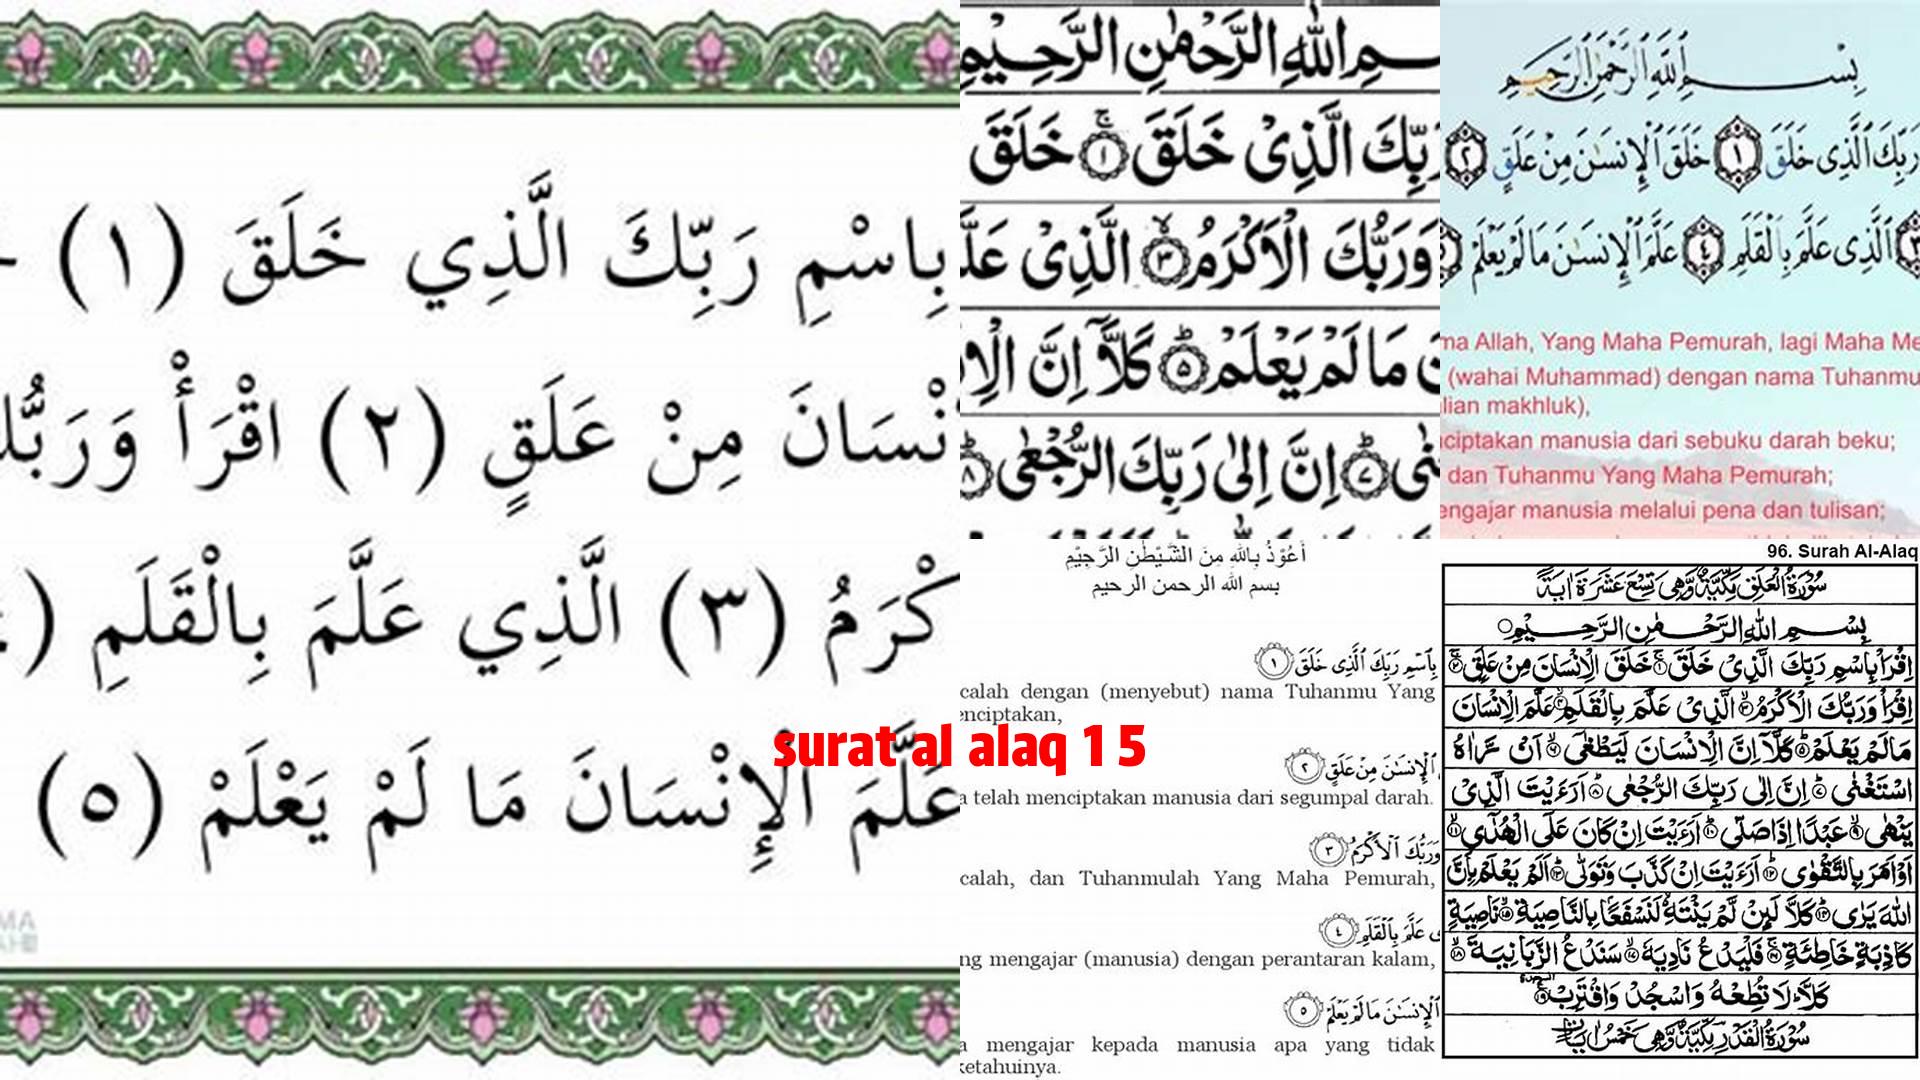 بِاسْمِ رَبِّكَ الَّذِي خَلَقَ (١)
نْسَانَ مِنْ عَلَقٍ (٢) اقْرَأْ وَرَبُّكَ
كْرَمُ (٣) الَّذِي عَلَّمَ بِالْقَلَمِ (
عَلَّمَ الْإِنْسَانَ مَا لَمْ يَعْلَمْ (٥)
ـمِ اللهِ الرَّحْمٰنِ الرَّحِيْمِ
رَبِّكَ الَّذِىْ خَلَقَ ۚ ١ خَلَقَ
وَرَبُّكَ الْاَكْرَمُ ٣ الَّذِىْ عَلَّ
مَا لَمْ يَعْلَمْ ٥ كَلَّآ اِنَّ الْاِ
٧ اِنَّ اِلٰى رَبِّكَ الرُّجْعٰى ٨
بِسْــمِ ٱللَّهِ ٱلرَّحْمَٰنِ ٱلرَّحِيمِ
رَبِّكَ ٱلَّذِى خَلَقَ ١ خَلَقَ ٱلْإِنسَٰنَ مِنْ عَلَقٍ ٢
٣ ٱلَّذِى عَلَّمَ بِٱلْقَلَمِ ٤ عَلَّمَ ٱلْإِنسَٰنَ مَا لَمْ يَعْلَمْ ٥
ma Allah, Yang Maha Pemurah, lagi Maha Me
(wahai Muhammad) dengan nama Tuhanmu
lian makhluk),
nciptakan manusia dari sebuku darah beku;
dan Tuhanmu Yang Maha Pemurah;
engajar manusia melalui pena dan tulisan;
أَعُوْذُ بِاللهِ مِنَ الشَّيْطٰنِ الرَّجِيْمِ
بسم الله الرحمن الرحيم
بِٱسْمِ رَبِّكَ ٱلَّذِى خَلَقَ ١
calah dengan (menyebut) nama Tuhanmu Yang
enciptakan,
surat al alaq 15
ٱلْإِنسَٰنَ مِنْ عَلَقٍ ٢
a telah menciptakan manusia dari segumpal darah.
وَرَبُّكَ ٱلْأَكْرَمُ ٣
calah, dan Tuhanmulah Yang Maha Pemurah,
ى عَلَّمَ بِٱلْقَلَمِ ٤
ng mengajar (manusia) dengan perantaran kalam,
ٱلْإِنسَٰنَ مَا لَمْ يَعْلَمْ ٥
a mengajar kepada manusia apa yang tidak
ketahuinya.
96. Surah Al-Alaq
سُوْرَةُ الْعَلَقِ مَكِّيَّةٌ وَّهِىَ تِسْعَ عَشَرَةَ اٰيَةً
بِسْــمِ اللهِ الرَّحْــمٰنِ الرَّحِــيْمِ
اِقْرَأْ بِاسْمِ رَبِّكَ الَّذِىْ خَلَقَ ١ خَلَقَ الْاِنْسَانَ مِنْ عَلَقٍ ٢
اِقْرَأْ وَرَبُّكَ الْاَكْرَمُ ٣ الَّذِىْ عَلَّمَ بِالْقَلَمِ ٤ عَلَّمَ الْاِنْسَانَ
مَا لَمْ يَعْلَمْ ٥ كَلَّآ اِنَّ الْاِنْسَانَ لَيَطْغٰى ٦ اَنْ رَّاٰهُ
اسْتَغْنٰى ٧ اِنَّ اِلٰى رَبِّكَ الرُّجْعٰى ٨ اَرَءَيْتَ الَّذِىْ
يَنْهٰى ٩ عَبْدًا اِذَا صَلّٰى ١٠ اَرَءَيْتَ اِنْ كَانَ عَلَى الْهُدٰى ١١
اَوْ اَمَرَ بِالتَّقْوٰى ١٢ اَرَءَيْتَ اِنْ كَذَّبَ وَتَوَلّٰى ١٣ اَلَمْ يَعْلَمْ بِاَنَّ
اللهَ يَرٰى ١٤ كَلَّا لَئِنْ لَّمْ يَنْتَهِ لَنَسْفَعًا بِالنَّاصِيَةِ ١٥ نَاصِيَةٍ
كَاذِبَةٍ خَاطِئَةٍ ١٦ فَلْيَدْعُ نَادِيَهٗ ١٧ سَنَدْعُ الزَّبَانِيَةَ ١٨
كَلَّا لَا تُطِعْهُ وَاسْجُدْ وَاقْتَرِبْ ١٩
سُوْرَةُ الْقَدْرِ مَكِّيَّةٌ وَّهِىَ خَمْسُ اٰيَاتٍ